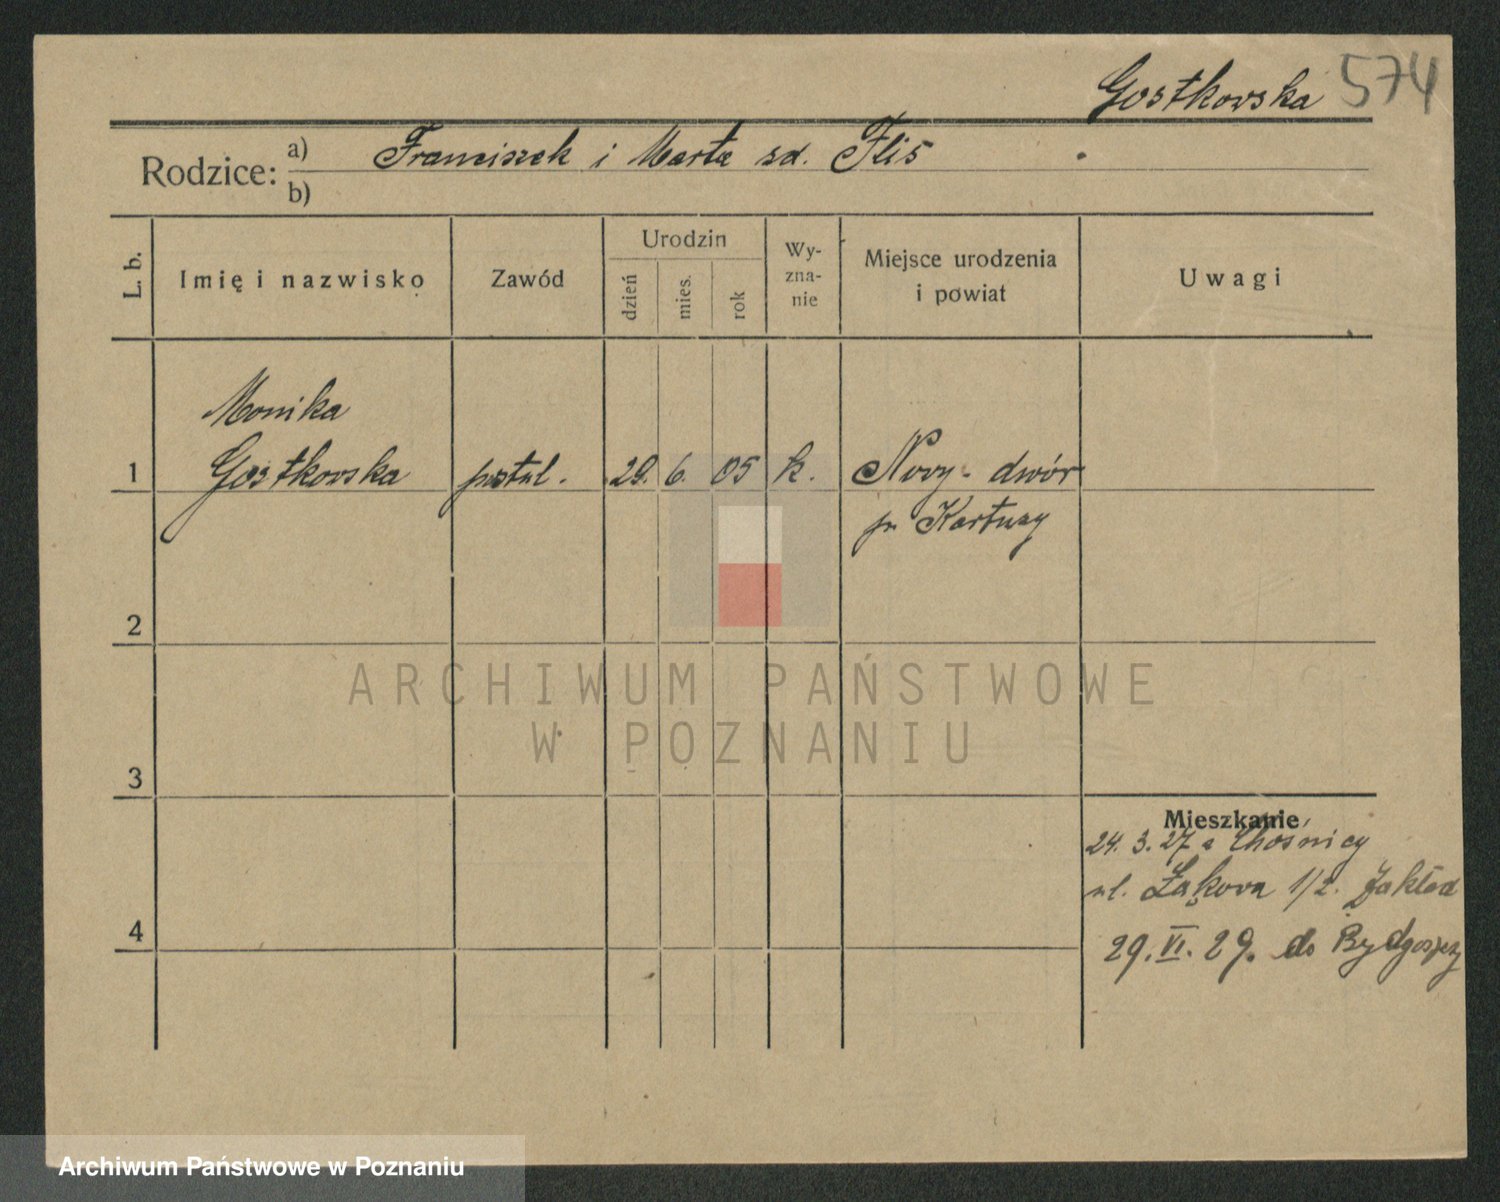 Gostkowska 574
Rodzice: a) Franciszek i Marta zd. Flis
b)
L. b. Imię i nazwisko Zawód Urodzin dzień mies. rok Wy-zna-nie Miejsce urodzenia i powiat Uwagi
Monika
1 Gostkowska postul. 29. 6. 05 k. Nowy-dwór
pw Kartuzy
2
ARCHIWUM PAŃSTWOWE
W POZNANIU
3
Mieszkanie
24. 3. 27 z Chośnicy
ul. Łąkowa 1/2. Zakład
4
29. VI. 29. do Bydgoszczy
Archiwum Państwowe w Poznaniu